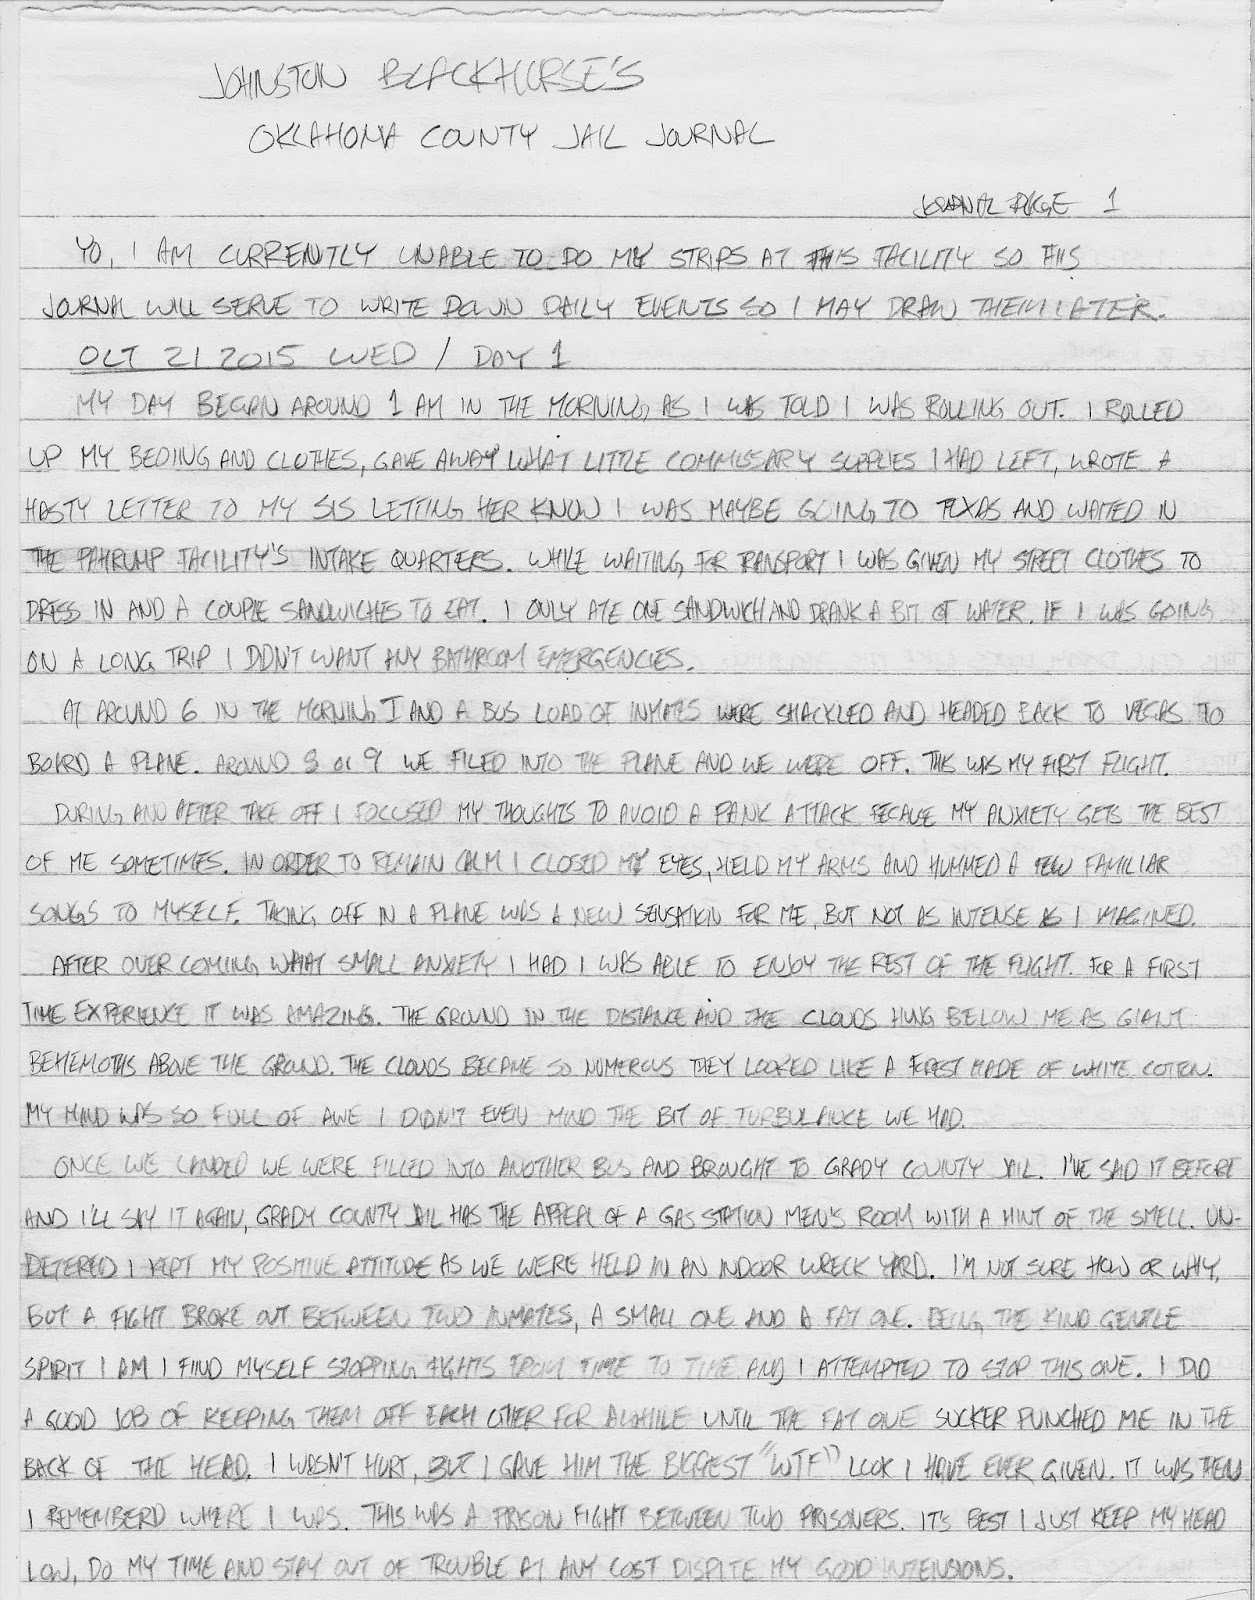 JOHNSTON BLACKHORSE'S
OKLAHOMA COUNTY JAIL JOURNAL
JOURNAL PAGE 1
YO, I AM CURRENTLY UNABLE TO DO MY STRIPS AT THIS FACILITY SO THIS
JOURNAL WILL SERVE TO WRITE DOWN DAILY EVENTS SO I MAY DRAW THEM LATER.
OCT 21 2015 WED / DAY 1
MY DAY BEGAN AROUND 1 AM IN THE MORNING AS I WAS TOLD I WAS ROLLING OUT. I ROLLED
UP MY BEDING AND CLOTHES, GAVE AWAY WHAT LITTLE COMMISSARY SUPPLIES I HAD LEFT, WROTE A
HASTY LETTER TO MY SIS LETTING HER KNOW I WAS MAYBE GOING TO TEXAS AND WAITED IN
THE PAHRUMP FACILITY'S INTAKE QUARTERS. WHILE WAITING FOR TRANSPORT I WAS GIVEN MY STREET CLOTHES TO
DRESS IN AND A COUPLE SANDWICHES TO EAT. I ONLY ATE ONE SANDWICH AND DRANK A BIT OF WATER. IF I WAS GOING
ON A LONG TRIP I DIDN'T WANT ANY BATHROOM EMERGENCIES.
AT AROUND 6 IN THE MORNING I AND A BUS LOAD OF INMATES WERE SHACKLED AND HEADED BACK TO VEGAS TO
BOARD A PLANE. AROUND 8 OR 9 WE FILED INTO THE PLANE AND WE WERE OFF. THIS WAS MY FIRST FLIGHT.
DURING AND AFTER TAKE OFF I FOCUSED MY THOUGHTS TO AVOID A PANIC ATTACK BECAUSE MY ANXIETY GETS THE BEST
OF ME SOMETIMES. IN ORDER TO REMAIN CALM I CLOSED MY EYES, HELD MY ARMS AND HUMMED A FEW FAMILIAR
SONGS TO MYSELF. TAKING OFF IN A PLANE WAS A NEW SENSATION FOR ME, BUT NOT AS INTENSE AS I IMAGINED.
AFTER OVER COMING WHAT SMALL ANXIETY I HAD I WAS ABLE TO ENJOY THE REST OF THE FLIGHT. FOR A FIRST
TIME EXPERIENCE IT WAS AMAZING. THE GROUND IN THE DISTANCE AND THE CLOUDS HUNG BELOW ME AS GIANT
BEHEMOTHS ABOVE THE GROUND. THE CLOUDS BECAME SO NUMEROUS THEY LOOKED LIKE A FOREST MADE OF WHITE COTTON.
MY MIND WAS SO FULL OF AWE I DIDN'T EVEN MIND THE BIT OF TURBULANCE WE HAD.
ONCE WE LANDED WE WERE FILLED INTO ANOTHER BUS AND BROUGHT TO GRADY COUNTY JAIL. I'VE SAID IT BEFORE
AND I'LL SAY IT AGAIN, GRADY COUNTY JAIL HAS THE APPEAL OF A GAS STATION MEN'S ROOM WITH A HINT OF THE SMELL. UN-
DETERED I KEPT MY POSITIVE ATTITUDE AS WE WERE HELD IN AN INDOOR WRECK YARD. I'M NOT SURE HOW OR WHY,
BUT A FIGHT BROKE OUT BETWEEN TWO INMATES, A SMALL ONE AND A FAT ONE. BEING THE KIND GENTLE
SPIRIT I AM I FIND MYSELF STOPPING FIGHTS FROM TIME TO TIME AND I ATTEMPTED TO STOP THIS ONE. I DID
A GOOD JOB OF KEEPING THEM OFF EACH OTHER FOR AWHILE UNTIL THE FAT ONE SUCKER PUNCHED ME IN THE
BACK OF THE HEAD. I WASN'T HURT, BUT I GAVE HIM THE BIGGEST "WTF" LOOK I HAVE EVER GIVEN. IT WAS THEN
I REMEMBERD WHERE I WAS. THIS WAS A PRISON FIGHT BETWEEN TWO PRISONERS. IT'S BEST I JUST KEEP MY HEAD
LOW, DO MY TIME AND STAY OUT OF TROUBLE AT ANY COST DISPITE MY GOOD INTENSIONS.